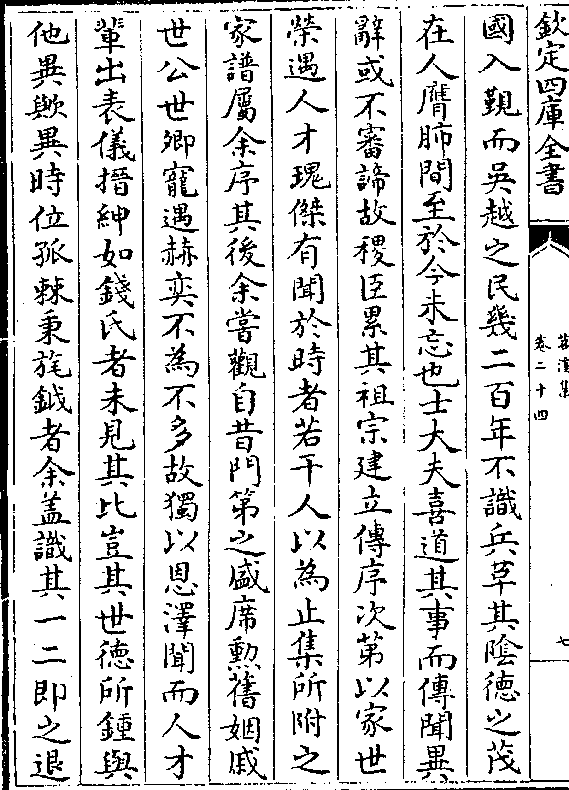 欽定四庫全書
卷二十四
七
國入覲而吳越之民幾二百年不識兵革其陰德之茂
在人膺肺間至於今未忘也士大夫喜道其事而傳聞異
辭或不審諦故稷臣累其祖宗建立傳序次第以家世
榮遇人才瑰傑有聞於時者若干人以為止集所附之
家譜屬余序其後余嘗觀自昔門第之盛席勲舊姻戚
世公世卿寵遇赫奕不為不多故獨以恩澤聞而人才
輩出表儀搢紳如錢氏者未見其比豈其世德所鍾與
他異歟異時位孤棘秉旄鉞者余盖識其一二即之退